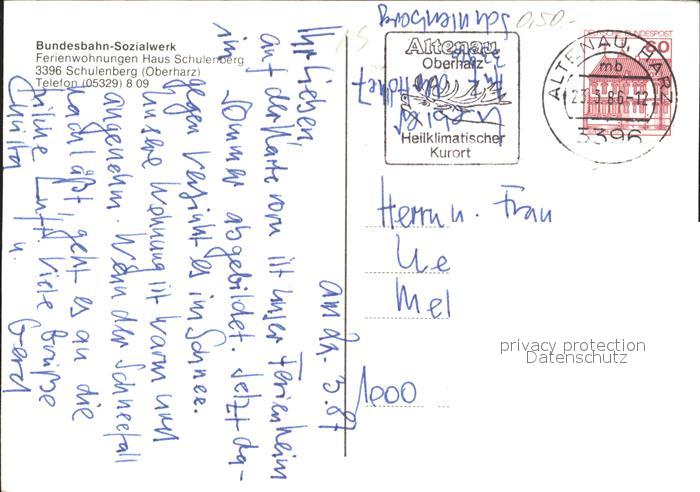 Bundesbahn-Sozialwerk
Ferienwohnungen Haus Schulenberg
3396 Schulenberg (Oberharz)
Telefon (05329) 8 09
am 21. 3. 87
Ihr Lieben,
auf der Karte vorn ist unser Ferienheim
im Sommer abgebildet. Jetzt da-
gegen versinkt es im Schnee.
Unsere Wohnung ist warm und
angenehm. Wenn der Schneefall
nachläßt, geht es an die
Luft. Viele Grüße
u. Gerd
Schulenberg
0,50.-
Altenau
Oberharz
Heilklimatischer
Kurort
DEUTSCHE BUNDESPOST
ALTENAU, HARZ
mb
3396
Herrn u. Frau
1000
privacy protection
Datenschutz